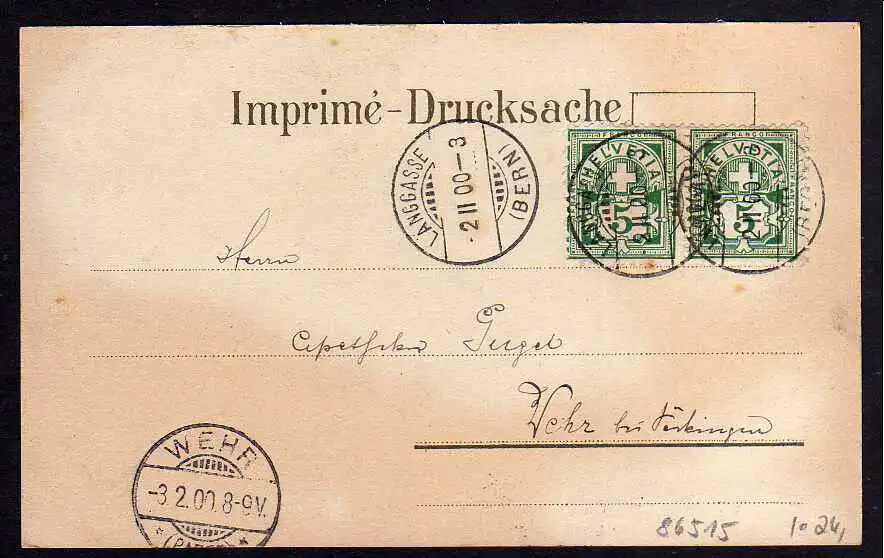 Imprimé-Drucksache
LÄNGGASSE
-2 II 00-3
(BERN)
FRANCO
HELVETIA
5
FRANCO
HELVETIA
5
Herrn
Apotheker Geigel
Wehr bei Säckingen
WEHR
-3.2.00.8-9V.
86515